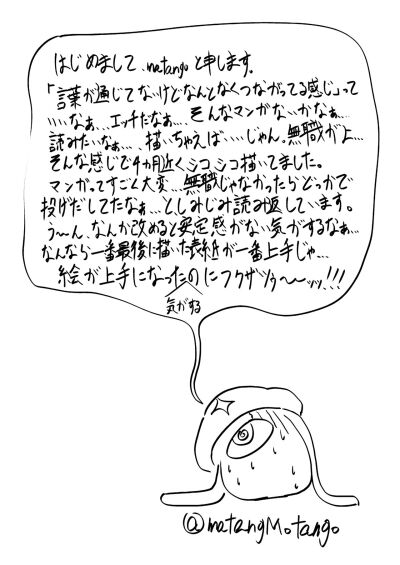 はじめまして、matangoと申します。
「言葉が通じてないけどなんとなくつながってる感じ」って
いいなぁ…エッチだなぁ…そんなマンガないかなぁ…
読みたいなぁ…描いちゃえば…いいじゃん。無職がよ…
そんな感じで4ヵ月近くシコシコ描いてました。
マンガってすごく大変…無職じゃなかったらどっかで
投げだしてたなぁ…としみじみ読み返しています。
う〜ん、なんか改めると安定感がない気がするなぁ…
なんなら一番最後に描いた表紙が一番上手じゃ…
絵が上手になったのにフクザツゥ〜〜ッッ!!!
気がする
@matangMotango